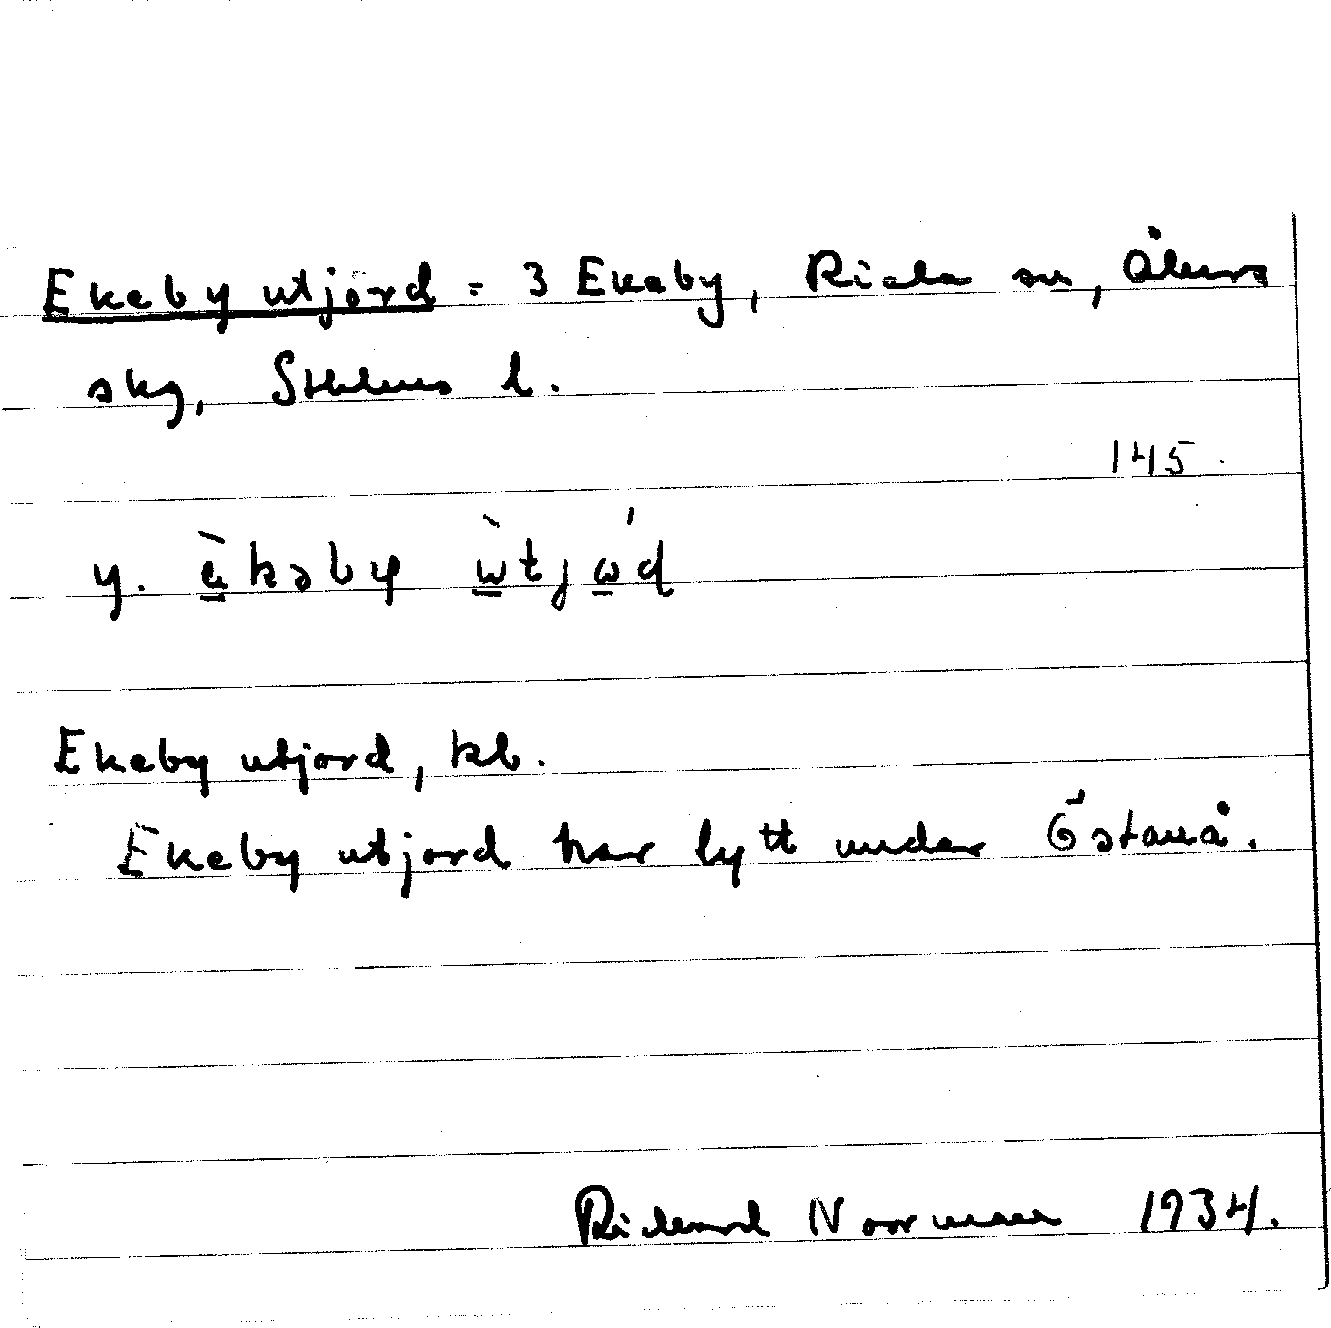 Ekeby utjord = 3 Ekeby, Riala sn, Åkers
skg, Sthlms l.
145.
y. è̱kəby ẁ̱tjώ̱d
Ekeby utjord, kb.
Ekeby utjord har lytt under Östanå.
Rickard Noorman 1934.